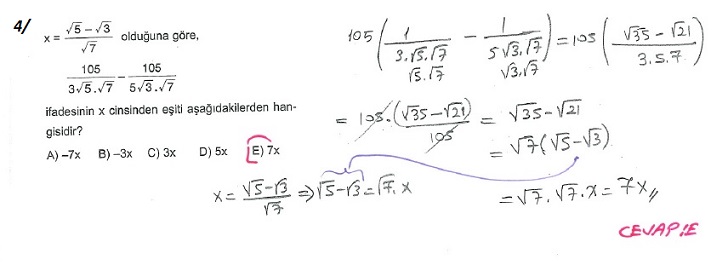 4/
x = (√5 − √3)/√7 olduğuna göre,
105/(3√5.√7) − 105/(5√3.√7)
ifadesinin x cinsinden eşiti aşağıdakilerden han-
gisidir?
A) –7x B) –3x C) 3x D) 5x E) 7x
105 ( 1/(3.√5.√7) − 1/(5√3.√7) ) = 105 ( (√35 − √21)/(3.5.7) )
√5.√7 √3.√7
= 105.(√35 − √21)/105 = √35 − √21
= √7(√5 − √3)
x = (√5 − √3)/√7 ⇒ √5 − √3 = √7. x
= √7. √7. x = 7x,,
CEVAP: E